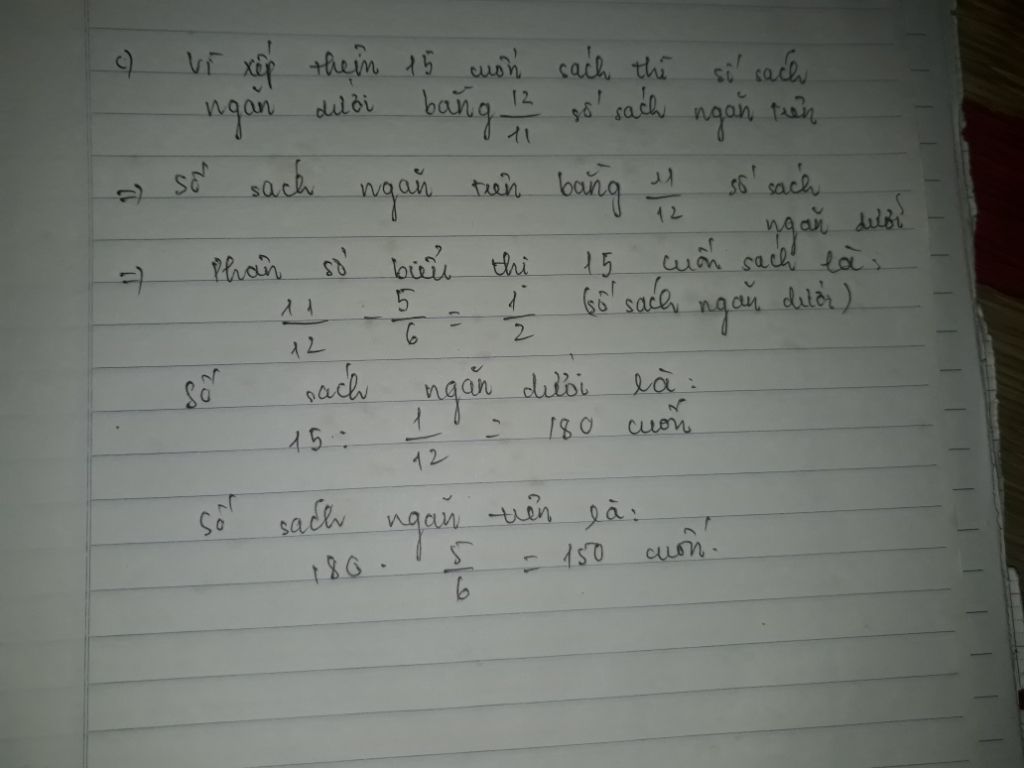 c) Vì xếp thêm 15 cuốn sách thì số sách
ngăn dưới bằng 12/11 số sách ngăn trên
=> Số sách ngăn trên bằng 11/12 số sách
ngăn dưới
=> Phân số biểu thị 15 cuốn sách là:
11/12 - 5/6 = 1/2 (số sách ngăn dưới)
Số sách ngăn dưới là:
15 : 1/12 = 180 cuốn
Số sách ngăn trên là:
180 . 5/6 = 150 cuốn.